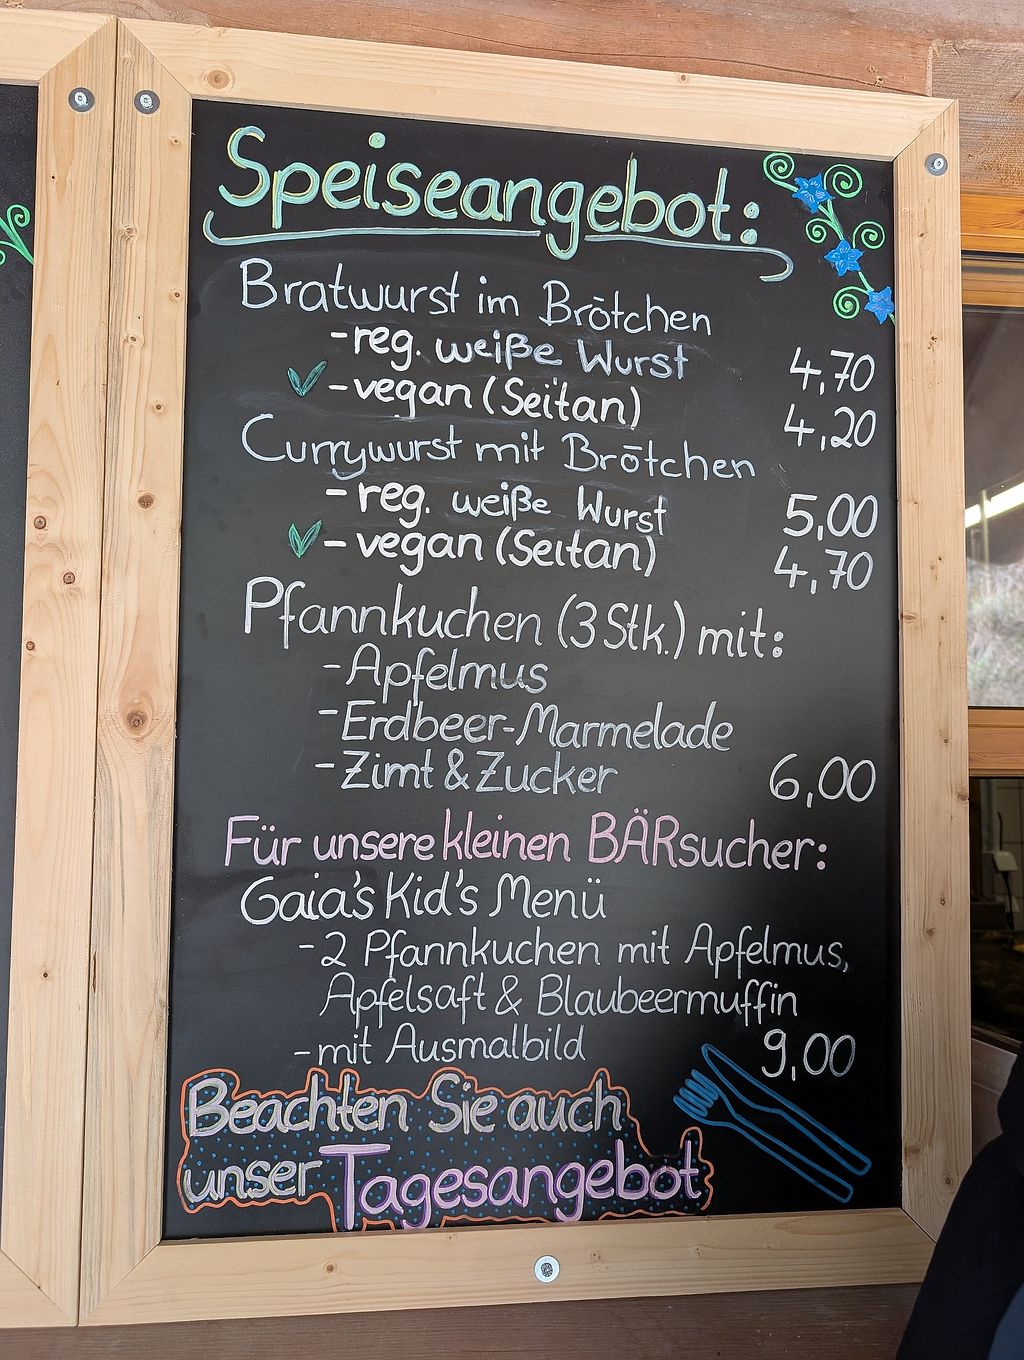 Speiseangebot:
Bratwurst im Brötchen
- reg. weiße Wurst 4,70
- vegan (Seitan) 4,20
Currywurst mit Brötchen
- reg. weiße Wurst 5,00
- vegan (Seitan) 4,70
Pfannkuchen (3 Stk.) mit:
- Apfelmus
- Erdbeer-Marmelade
- Zimt & Zucker 6,00
Für unsere kleinen BÄRsucher:
Gaia's Kid's Menü
- 2 Pfannkuchen mit Apfelmus,
Apfelsaft & Blaubeermuffin
- mit Ausmalbild 9,00
Beachten Sie auch
unser Tagesangebot